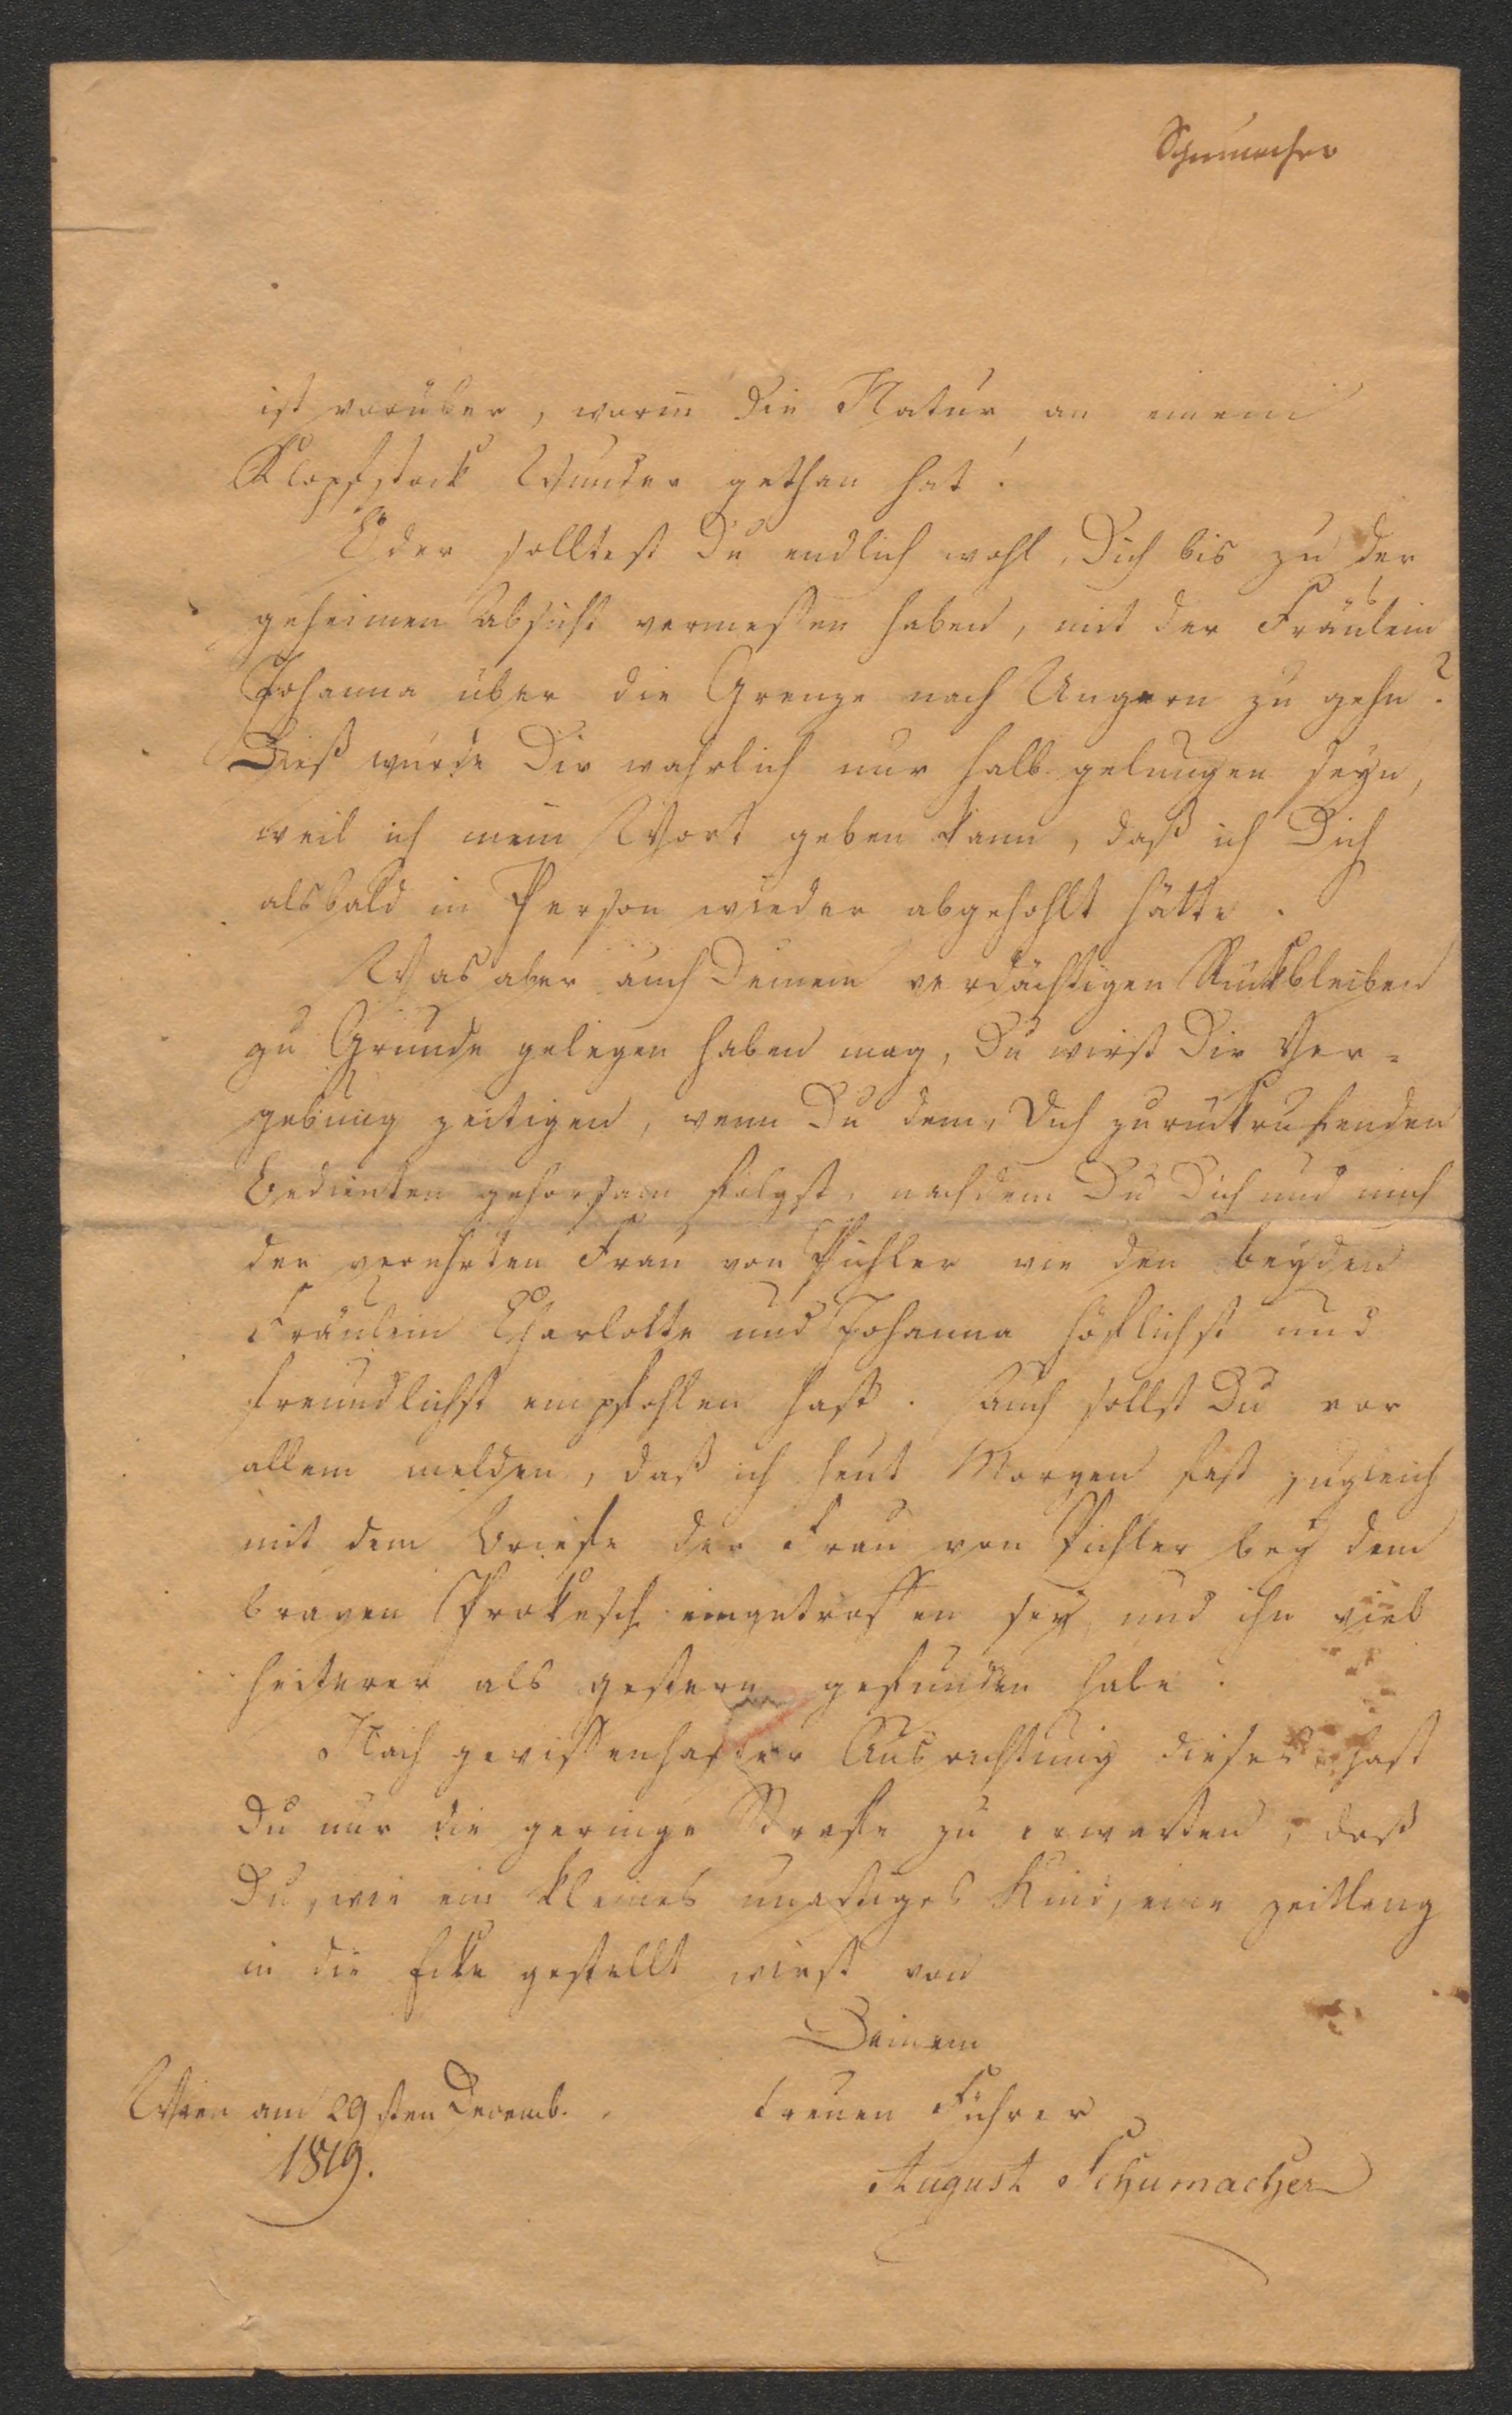 Schumacher
ist vorüber, worin die Natur an einem
Klopfstock Wunder gethan hat!
Oder solltest Du endlich wohl, Dich bis zu der
geheimen Absicht vermessen haben, mit der Fräulein
Johanna über die Grenze nach Ungern zu gehn?
Dieß würde Dir wahrlich nur halb gelungen seyn,
weil ich mein Wort geben kann, daß ich Dich
alsbald in Person wieder abgehohlt hätte.
Was aber auch Deinem verdächtigen Rückbleiben
zu Grunde gelegen haben mag, Du wirst Dir Ver-
gebung zeitigen, wenn Du dem, Dich zurückrufenden
Bedienten gehorsam folgst, nachdem Du Dich und mich
der verehrten Frau von Pichler wie den beyden
Fräulein Charlotte und Johanna höflichst und
freundlichst empfohlen hast. Auch sollst Du vor
allem melden, daß ich heut Morgen fast zugleich
mit dem Briefe der Frau von Pichler bey dem
braven Prokesch eingetroffen sey und ihn viel
heiterer als gestern gefunden habe.
Nach gewissenhafter Ausrichtung dieses hast
Du nur die geringe Strafe zu erwarten, daß
Du, wie ein kleines unartiges Kind, eine zeitlang
in die Ecke gestellt wirst von
Deinem
Wien am 29sten Decemb. treuen Führer
1819.
August Schumacher